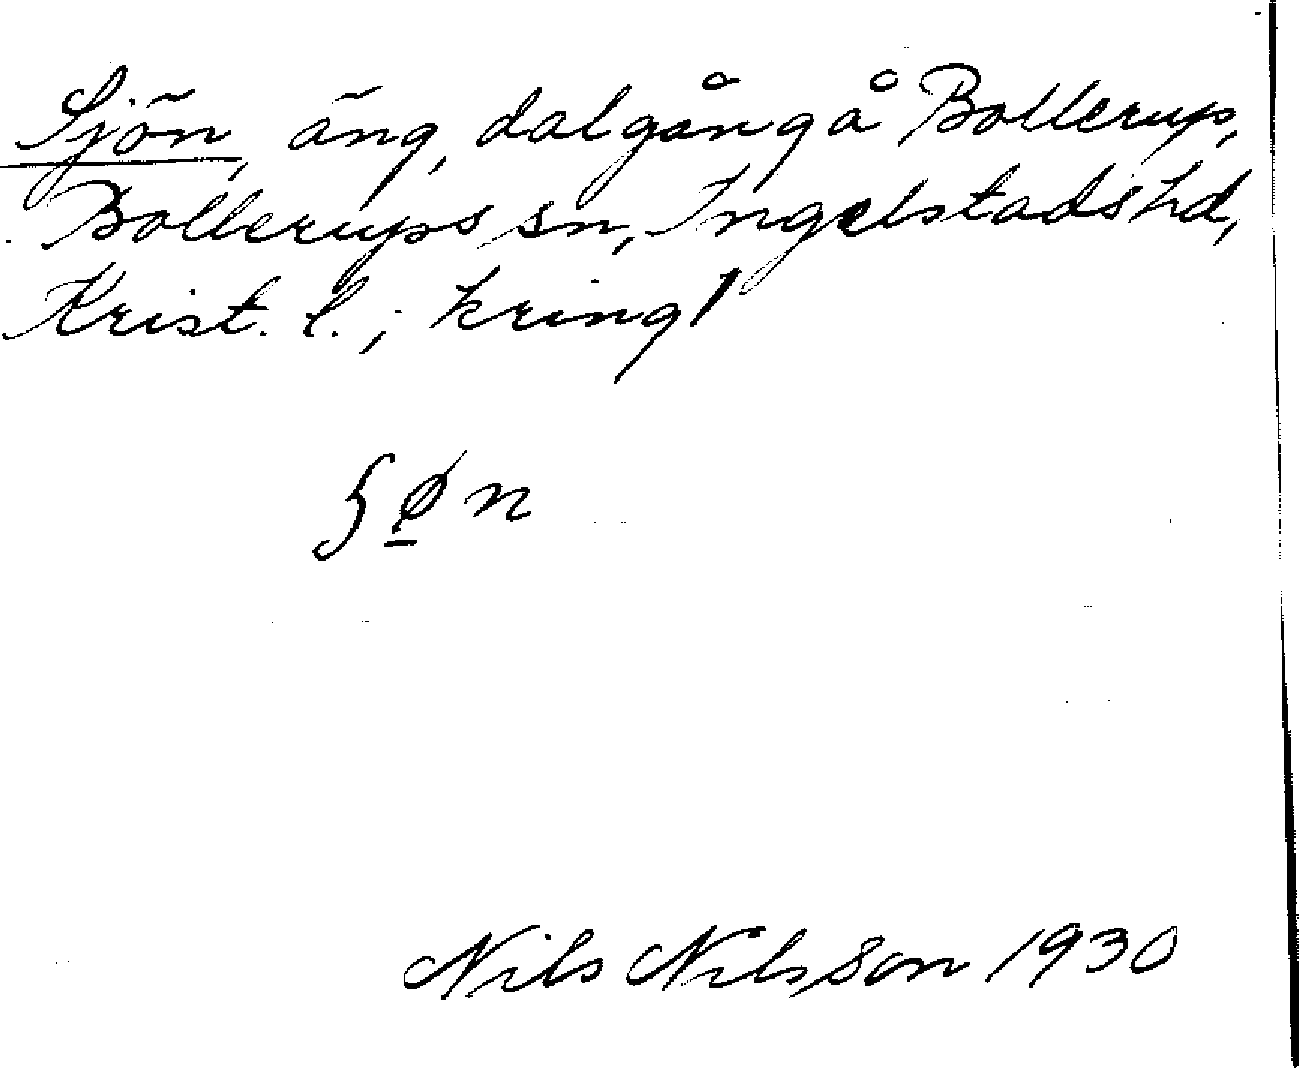 Sjön, äng, dalgång å Bollerup,
Bollerups sn, Ingelstads hd,
Krist. l.; kring 1
ʃø̱n
Nils Nilsson 1930